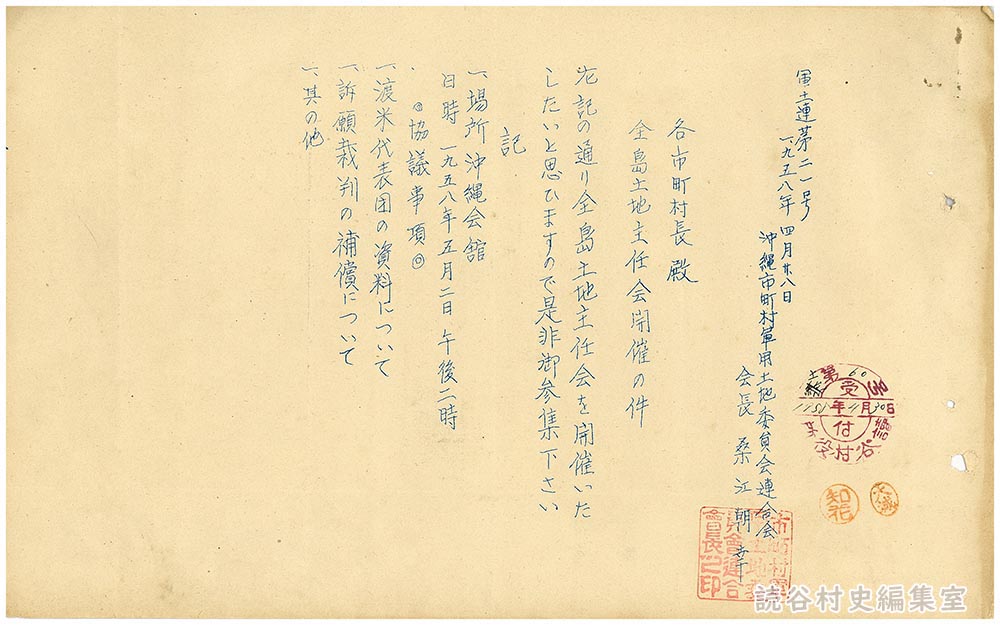 軍土連第二一号
一九五八年四月廿八日
沖縄市町村軍用土地委員会連合会
会長 桑江朝幸
各市町村長殿
全島土地主任会開催の件
左記の通り全島土地主任会を開催いた
したいと思ひますので是非御参集下さい
記
一、場所 沖縄会館
日時 一九五八年五月二日午後二時
◎協議事項◎
一、渡米代表団の資料について
一、訴願裁判の補償について
一、其の他
第 60
受付
年4月30日
知花
會長之印
読谷村史編集室